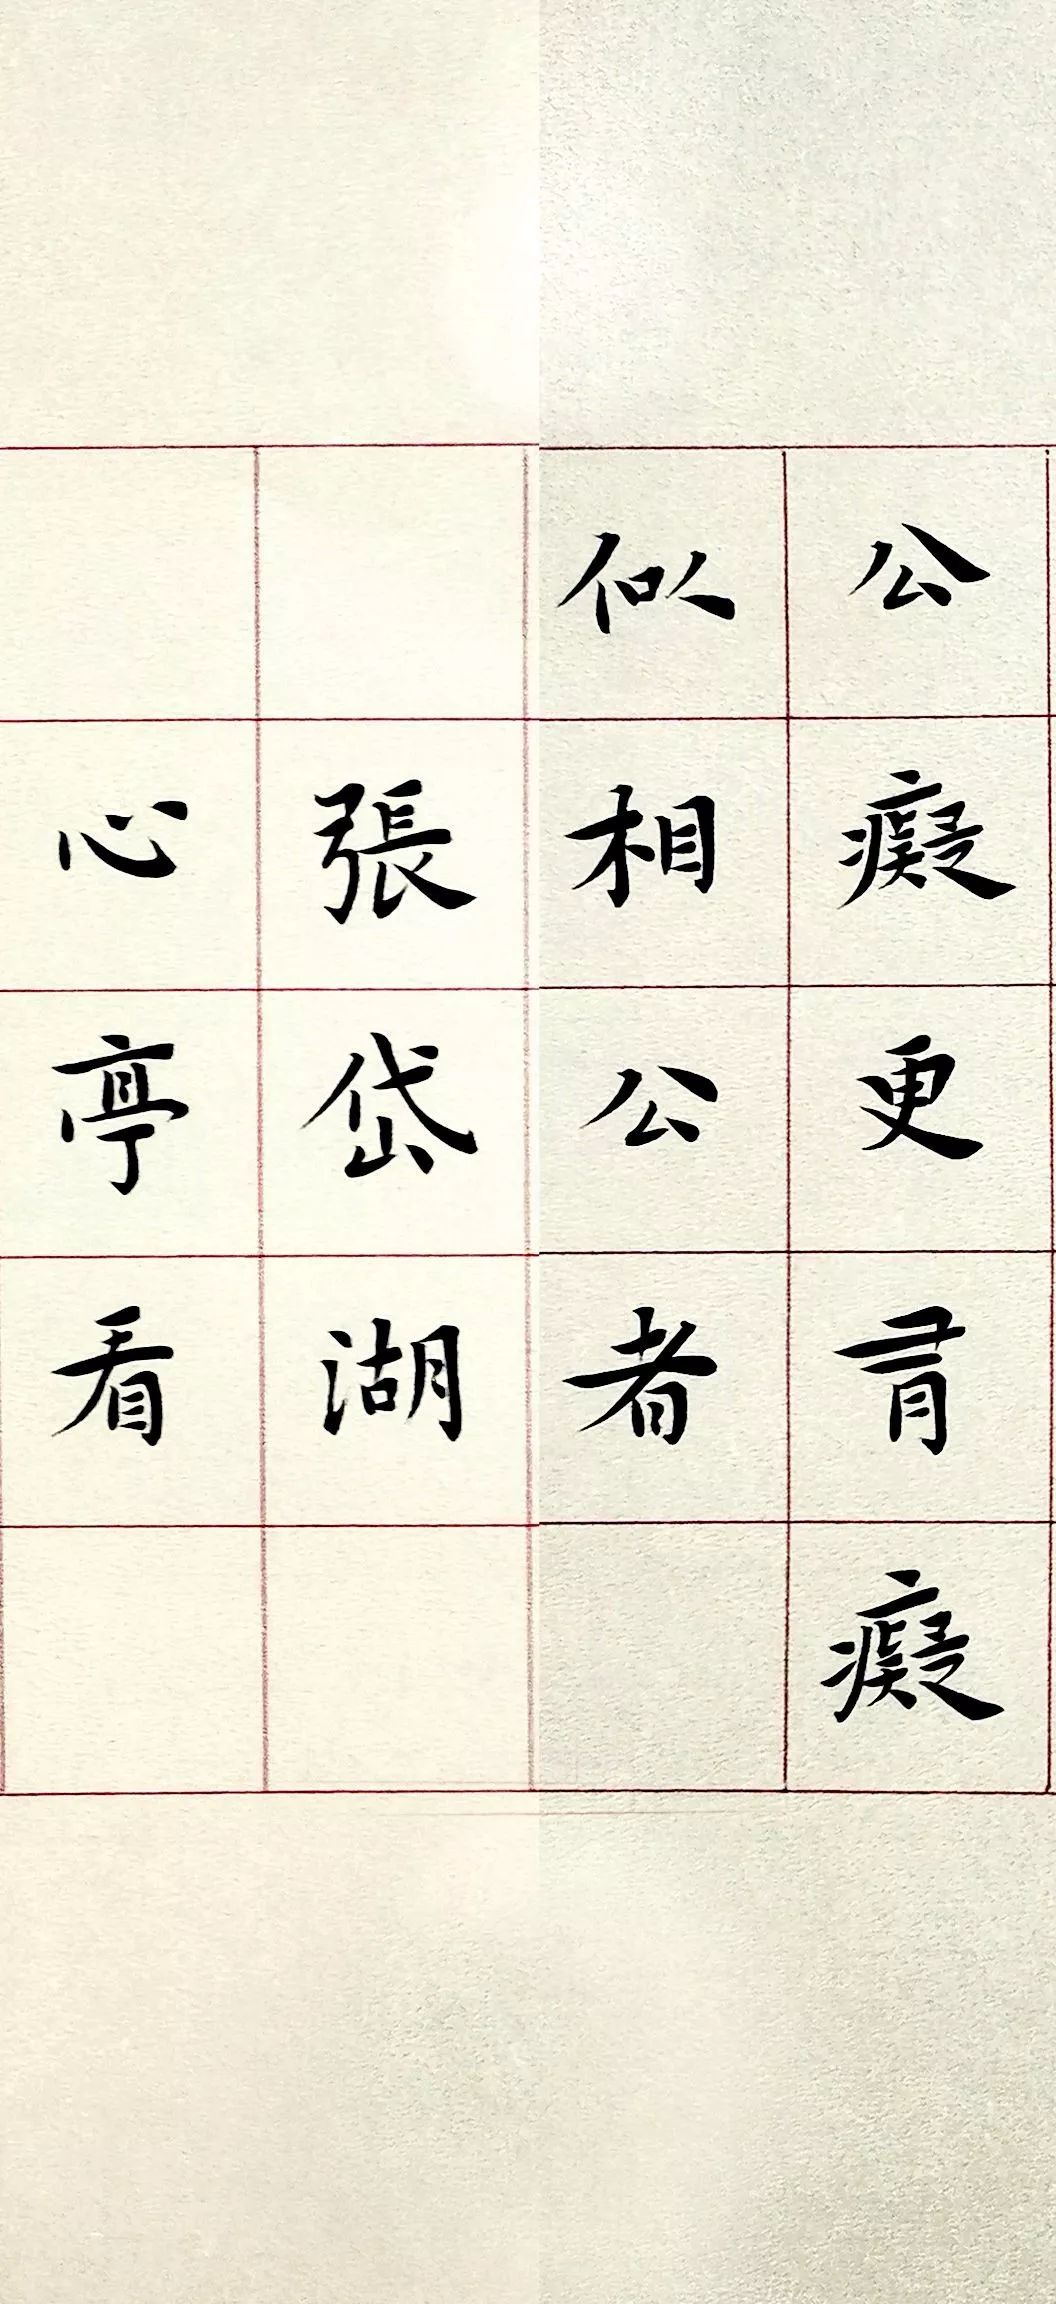 公癡更有癡
似相公者
張岱湖
心亭看